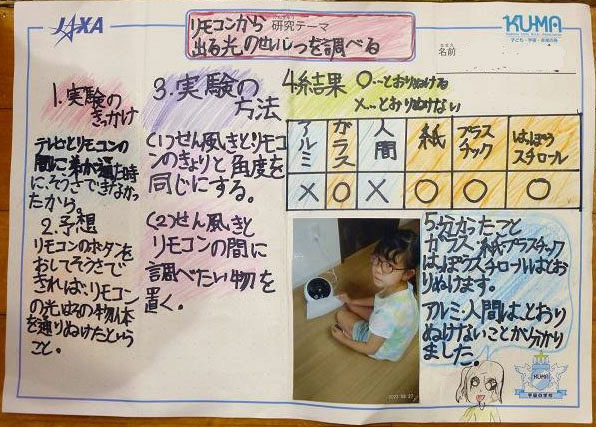 JAXA
研究テーマ
けんきゅう
リモコンから
出る光のせいしつを調べる
KU-MA
子ども・宇宙・未来の会
名前
なまえ
1. 実験の
きっかけ
テレビとリモコンの
間に弟が通った時
に、そうさできなかっ
たから。
2. 予想
リモコンのボタンを
おしてそうさで
きれば、リモコン
の光はその物体
を通りぬけたという
こと。
3. 実験の
方法
(1)せん風きとリモコ
ンのきょりと角度を
同じにする。
(2)せん風きと
リモコンの間に
調べたい物を
置く。
4結果 〇…とおりぬける
×…とおりぬけない
アルミ ガラス 人間 紙 プラスチック はっぽうスチロール
× 〇 × 〇 〇 〇
5分かったこと
ガラス・紙プラスチック
はっぽうスチロールはとお
りぬけます。
アルミ・人間は、とおり
ぬけないことが分かり
ました。
KU-MA
宇宙の学校